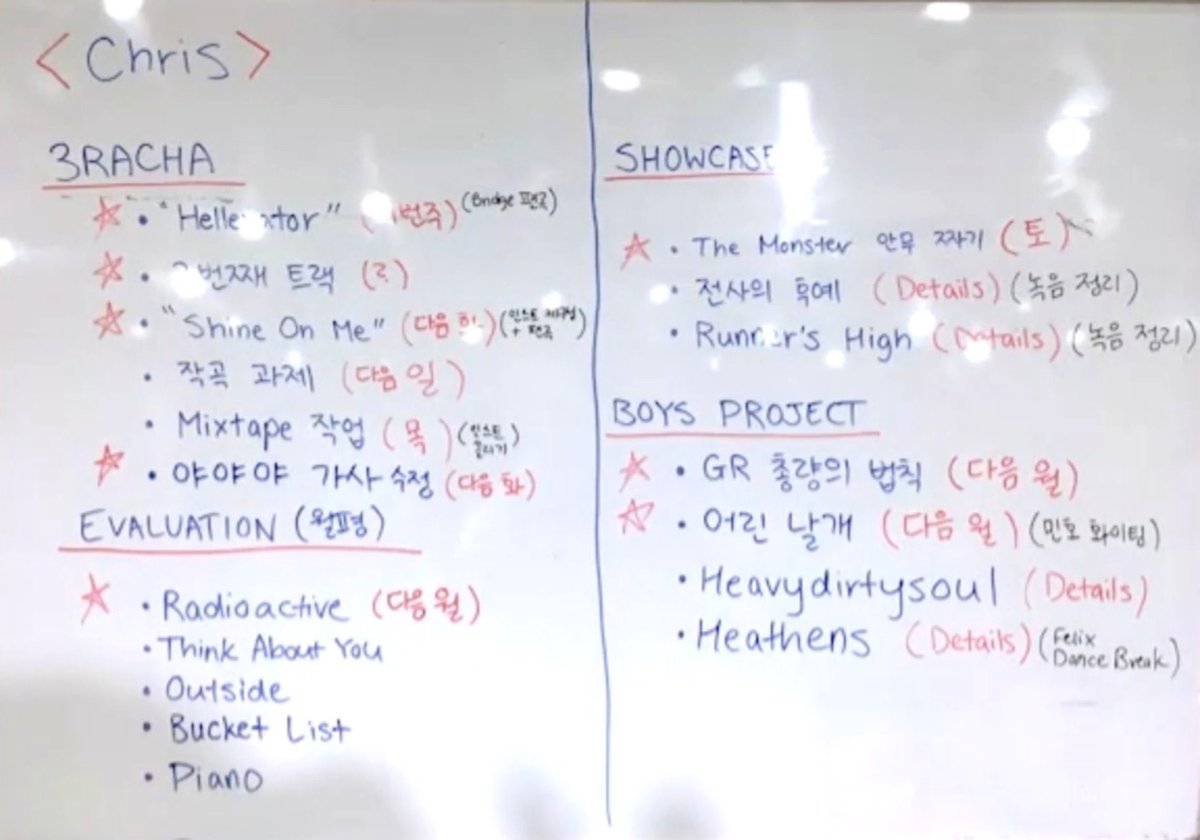 < Chris >
3RACHA
☆ • "Hellevator" (이번주) (Bridge 편곡)
☆ • 번째 트랙
☆ • "Shine On Me" (다음 화) (인스트 재구성 + 편곡)
• 작곡 과제 (다음 일)
• Mixtape 작업 (목) (인스트 올리기)
☆ • 야야야 가사 수정 (다음 화)
EVALUATION (월평)
☆ • Radioactive (다음 월)
• Think About You
• Outside
• Bucket List
• Piano
SHOWCASE
☆ • The Monster 안무 짜기 (토)
• 전사의 후예 (Details) (녹음 정리)
• Runner's High (Details) (녹음 정리)
BOYS PROJECT
☆ • GR 총량의 법칙 (다음 월)
☆ • 어린 날개 (다음 월) (민호 화이팅)
• Heavydirtysoul (Details)
• Heathens (Details) (Felix Dance Break)